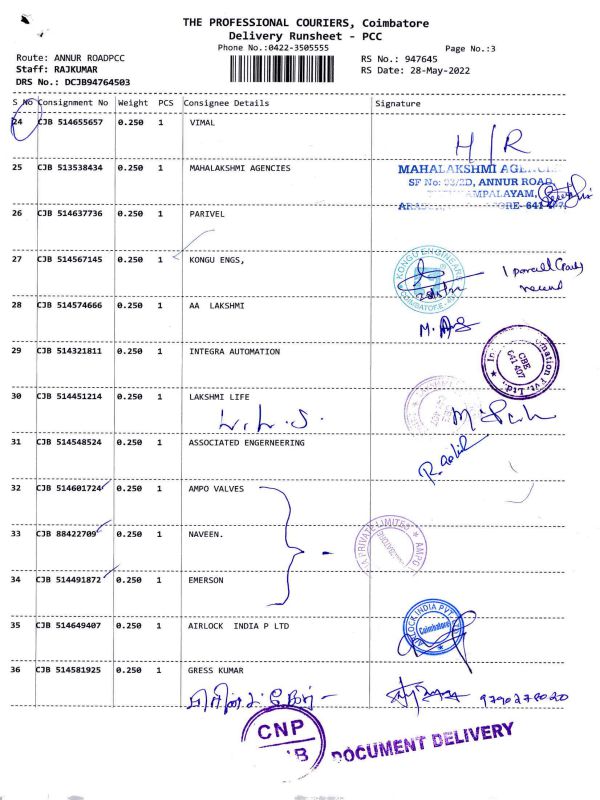 THE PROFESSIONAL COURIERS, Coimbatore
Delivery Runsheet - PCC
Phone No.:0422-3505555
Page No.:3
Route: ANNUR ROADPCC
RS No.: 947645
Staff: RAJKUMAR
RS Date: 28-May-2022
DRS No.: DCJB94764503
S No Consignment No Weight PCS Consignee Details Signature
24 CJB 514655657 0.250 1 VIMAL
H/R
25 CJB 513538434 0.250 1 MAHALAKSHMI AGENCIES
MAHALAKSHMI
SF No: 93/2D, ANNUR ROAD,
26 CJB 514637736 0.250 1 PARIVEL
27 CJB 514567145 0.250 1 KONGU ENGS,
KONGU ENGINEERS
COIMBATORE
1 parcell
28 CJB 514574666 0.250 1 AA LAKSHMI
29 CJB 514321811 0.250 1 INTEGRA AUTOMATION
mation Pvt. Ltd.
CBE
641 407
30 CJB 514451214 0.250 1 LAKSHMI LIFE
31 CJB 514548524 0.250 1 ASSOCIATED ENGERNEERING
32 CJB 514601724 0.250 1 AMPO VALVES
33 CJB 88422709 0.250 1 NAVEEN.
PRIVATE LIMITED
AMPO
34 CJB 514491872 0.250 1 EMERSON
35 CJB 514649407 0.250 1 AIRLOCK INDIA P LTD
AIRLOCK INDIA PVT LTD
Coimbatore
36 CJB 514581925 0.250 1 GRESS KUMAR
9790278020
CNP
DOCUMENT DELIVERY